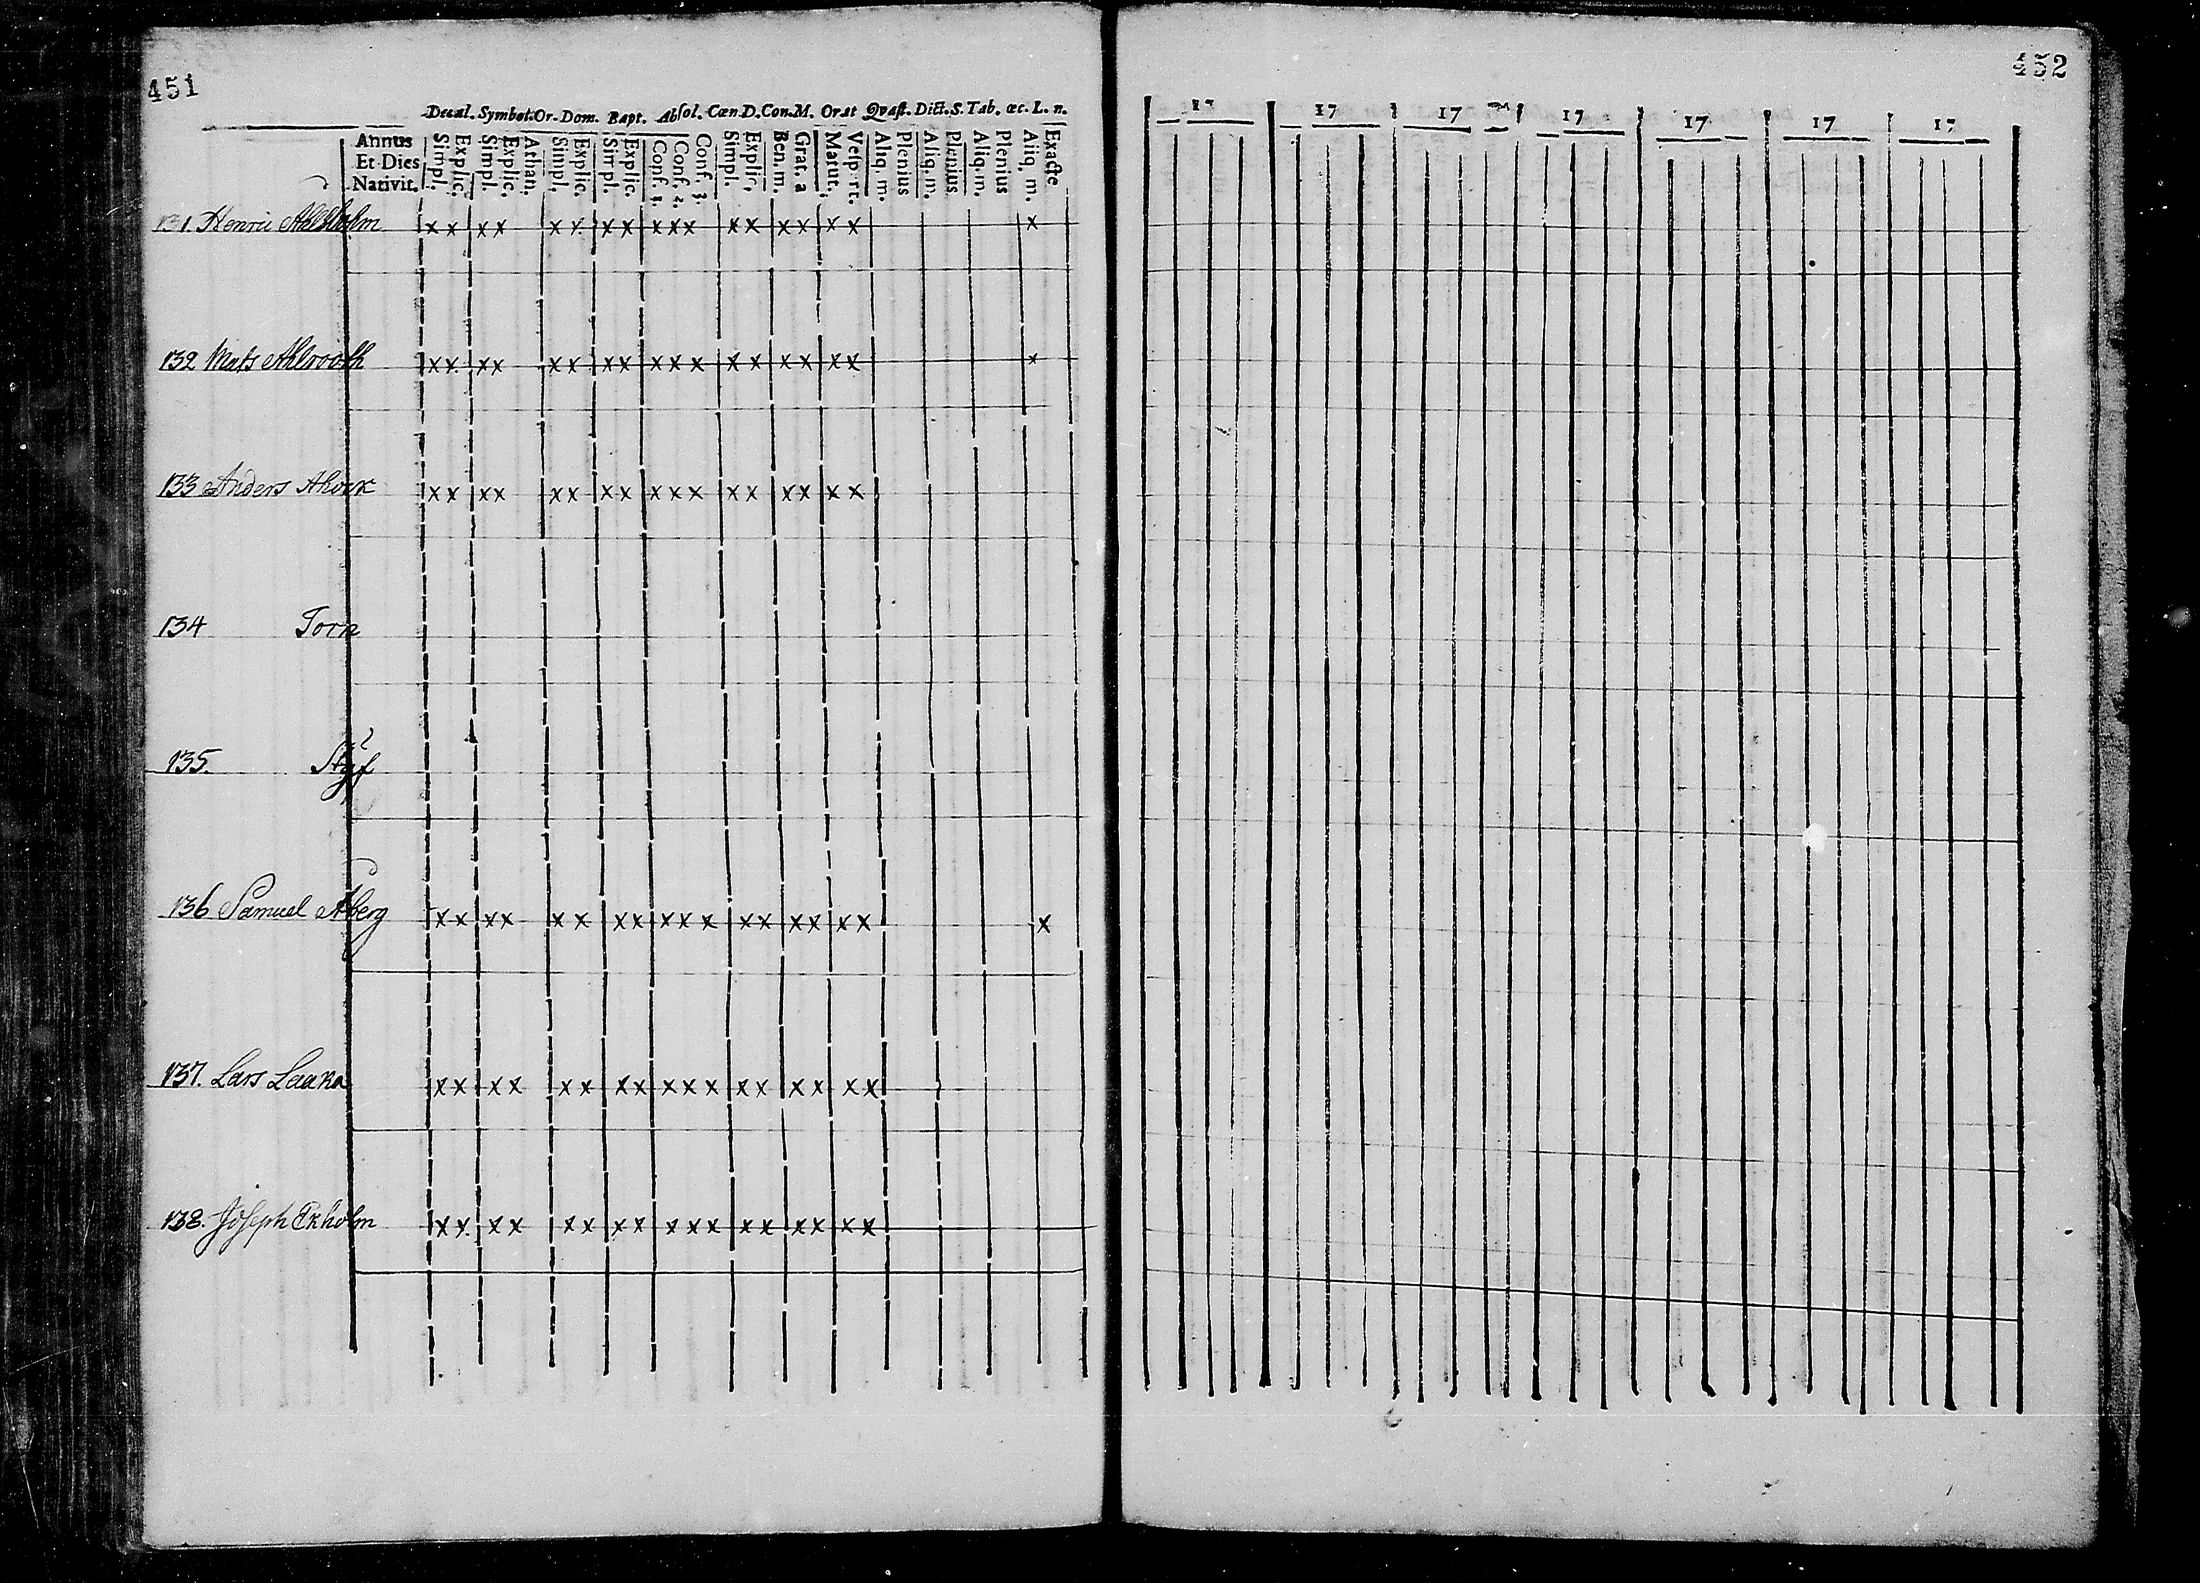 451
452
Decal. Symbol. Or. Dom. Bapt. Absol. Cœn. D. Con. M. Orat Qvæst. Dict. S. Tab. œc. L. n.
Annus Et Dies Nativit.
Simpl. Explic. Simpl. Explic. Athan. Simpl. Explic. Simpl. Explic. Conf. 1. Conf. 2. Conf. 3. Simpl. Explic. Ben. m. Grat. a Matut. Vesp. rt. Aliq. m. Plenius Aliq. m. Plenius Aliq. m. Plenius Aliq. m. Exacte
17 17 17 17 17 17 17
131. Henric x x x x x x x x x x x x x x x x x x
132 Mats Ahlrooth x x x x x x x x x x x x x x x x x x
133 Anders x x x x x x x x x x x x x x x x x
134 Torn
135. Styf
136 Samuel Åberg x x x x x x x x x x x x x x x x x x
137. Lars Laaka x x x x x x x x x x x x x x x x x
138. Joseph Ekholm x x x x x x x x x x x x x x x x x